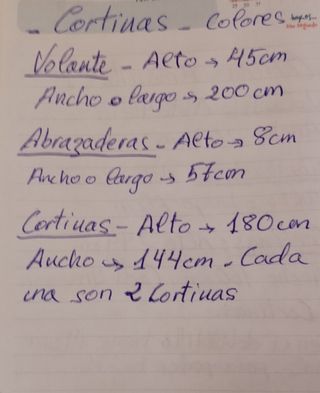 - Cortinas - Colores
Volante - Alto → 45cm
Ancho o largo → 200cm
Abrazaderas - Alto → 8cm
Ancho o largo → 57cm
Cortinas - Alto → 180cm
Ancho → 144cm - Cada
una son 2 Cortinas